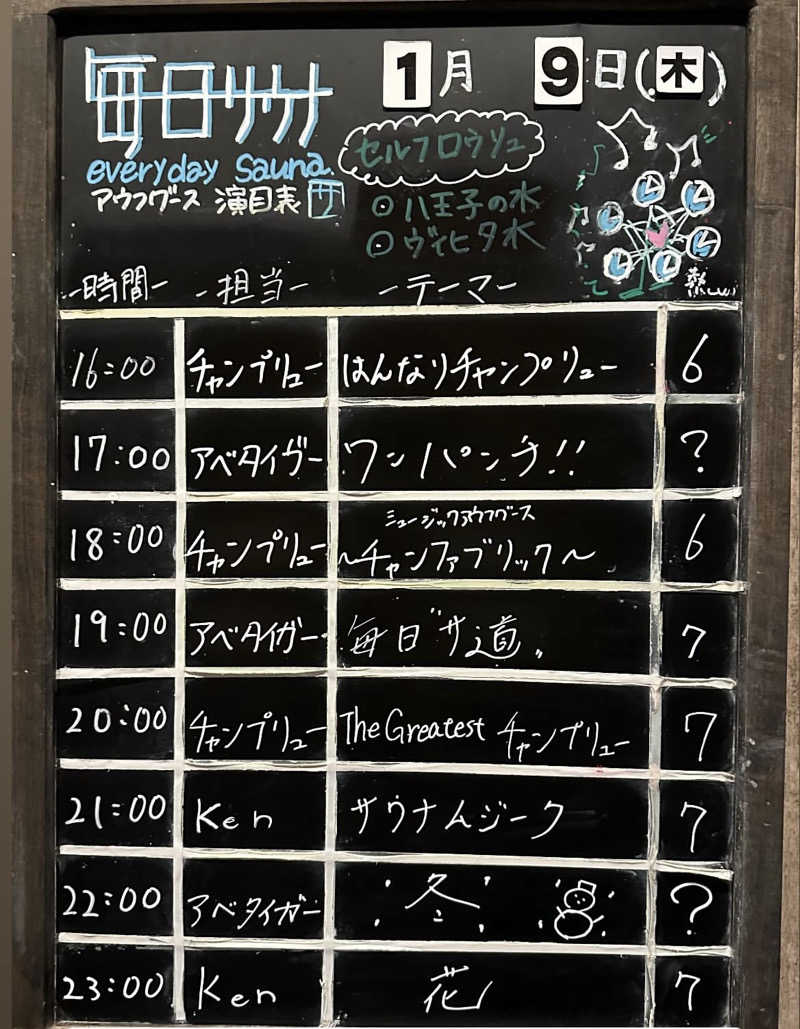 毎日サウナ
1月 9日(木)
everyday Sauna.
アウフグース 演目表 サ
セルフロウリュ
八王子の水
ヴィヒタ水
-時間- -担当- -テーマ-
16:00 チャンプリュー はんなりチャンプリュー 6
17:00 アベタイガー ワンパンチ!! ?
ミュージックアウフグース
18:00 チャンプリュー 〜チャンファブリック〜 6
19:00 アベタイガー 毎日"サ道。 7
20:00 チャンプリュー The Greatest チャンプリュー 7
21:00 Ken サウナムジーク 7
22:00 アベタイガー 冬 ?
23:00 Ken 花 7